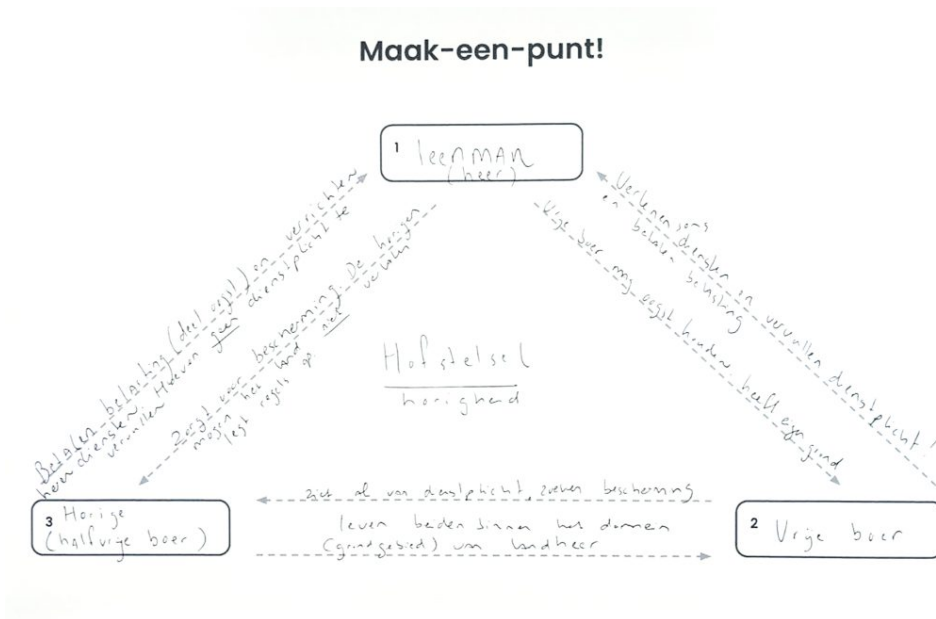 Maak-een-punt!
1 leenman
(heer)
Betalen belasting (deel oogst) en verrichten
herendiensten. Hoeven geen dienstplicht te
vervullen
Zorgt voor bescherming. De horigen
mogen het land niet verlaten
legt regels op
Vrije boer mag oogst houden, heeft eigen grond
Verlenen soms diensten en vervullen dienstplicht!
en betalen belasting
Hofstelsel
horigheid
ziet af van dienstplicht, zoeken bescherming
leven beiden binnen het domein
(grondgebied) van landheer
3 Horige
(halfvrije boer)
2 Vrije boer